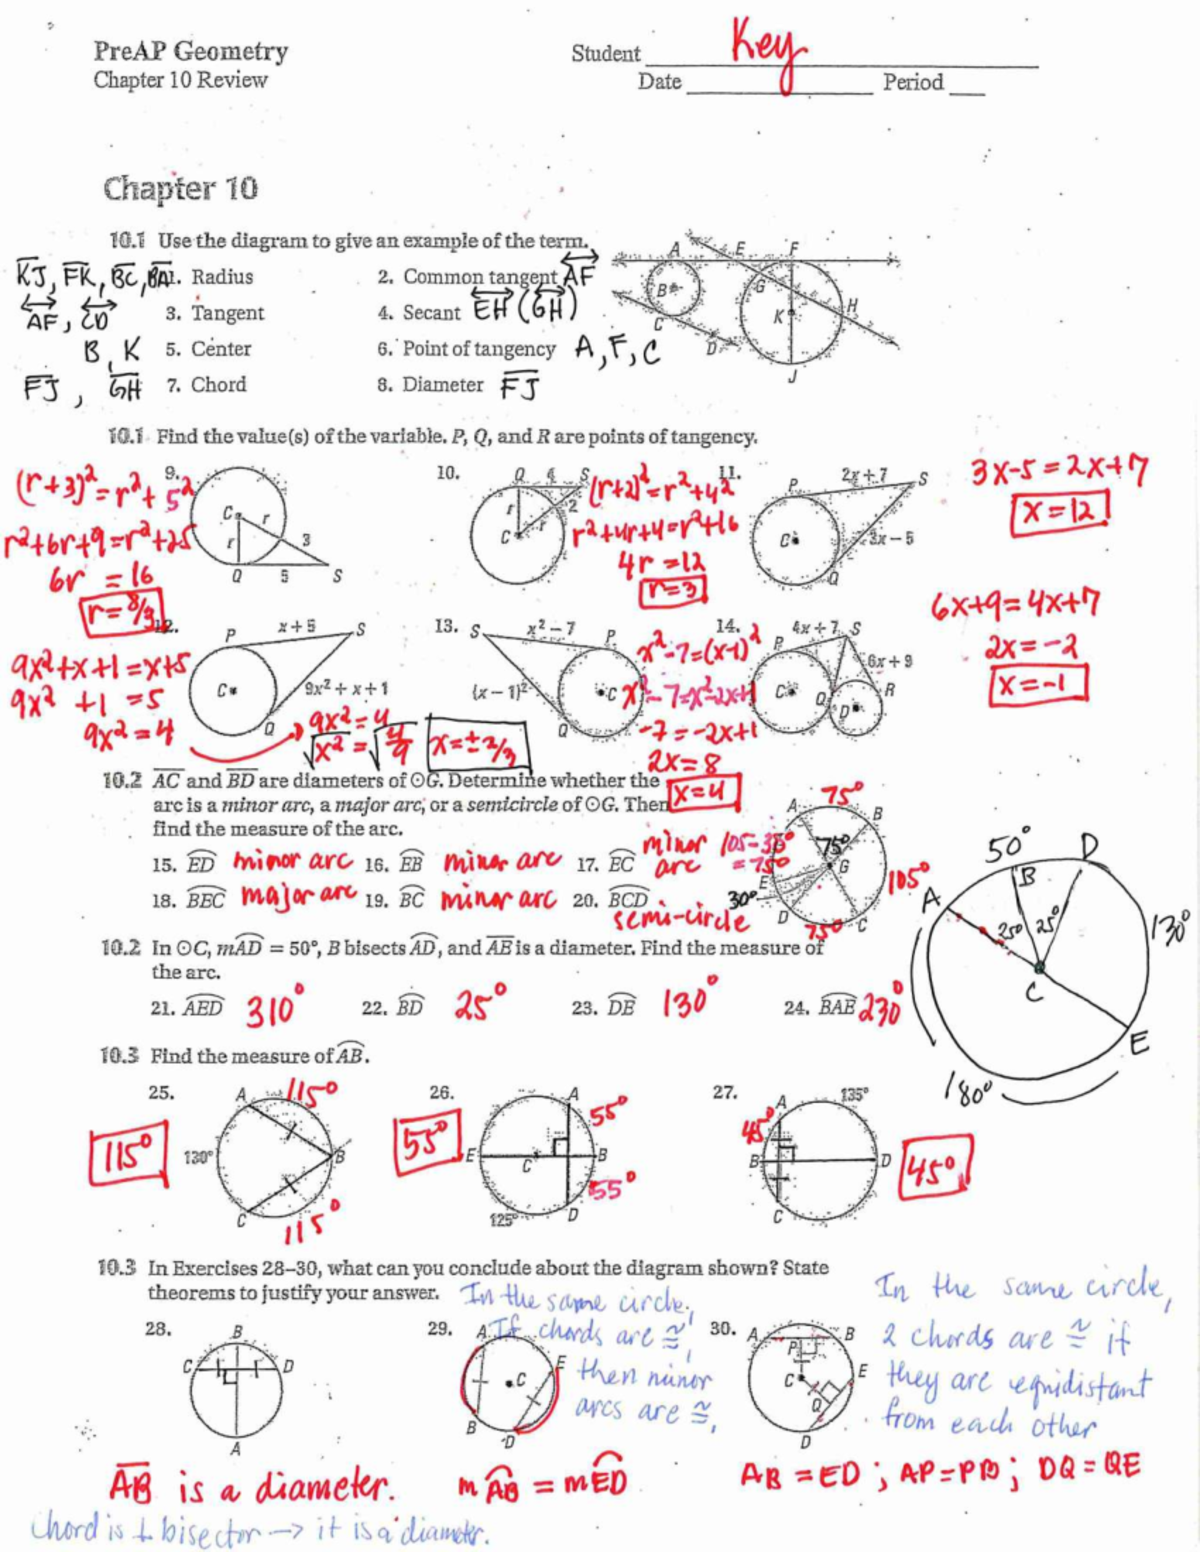 PreAP Geometry
Student Key
Chapter 10 Review
Date Period
Chapter 10
10.1 Use the diagram to give an example of the term.
KJ, FK, BC, BA 1. Radius
2. Common tangent AF
AF, CD 3. Tangent
4. Secant EH (GH)
B, K 5. Center
6. Point of tangency A, F, C
FJ, GH 7. Chord
8. Diameter FJ
A E F
B G H
K
C D
J
10.1 Find the value(s) of the variable. P, Q, and R are points of tangency.
9.
(r+3)² = r² + 5²
r²+6r+9=r²+25
6r = 16
r = 8/3
C r
r 3
Q 5 S
10.
Q 4 S
r 2
C r
(r+2)² = r²+4²
r²+4r+4=r²+16
4r = 12
r=3
11.
P 2x + 7 S
C 3x – 5
Q
3x-5 = 2x+7
x = 12
12.
P x + 5 S
C 9x² + x + 1
Q
9x²+x+1 = x+5
9x² +1 = 5
9x² = 4
9x² = 4
√x² = √4/9
x = ± 2/3
13. S x² – 7 P
(x – 1)² C
Q
x²-7=(x-1)²
x²-7=x²-2x+1
-7 = -2x+1
2x = 8
x = 4
14. 4x + 7 S
P 6x + 9
C Q R
D
6x+9 = 4x+7
2x = -2
x = -1
10.2 AC and BD are diameters of ⊙G. Determine whether the
arc is a minor arc, a major arc, or a semicircle of ⊙G. Then
find the measure of the arc.
15. ED minor arc 16. EB minor arc 17. EC minor arc 105-30° = 75°
18. BEC major arc 19. BC minor arc 20. BCD semi-circle
A 75° B
75°
G
E 105°
30° D C
75°
10.2 In ⊙C, mAD = 50°, B bisects AD, and AE is a diameter. Find the measure of
the arc.
21. AED 310° 22. BD 25° 23. DE 130° 24. BAE 230°
50° D
B
A 130°
25° 25°
C
E
180°
10.3 Find the measure of AB.
25.
A 115°
115° 130° B
C 115°
26.
A 55°
55° E C B
55°
125° D
27.
A 135°
45°
B D 45°
C
10.3 In Exercises 28–30, what can you conclude about the diagram shown? State
theorems to justify your answer.
28.
B
C D
A
AB is a diameter.
chord is ⊥ bisector → it is a diameter.
29.
A E
C
B D
In the same circle,
If chords are ≅,
then minor
arcs are ≅.
mAB = mED
30.
A B
P
C E
Q
D
In the same circle,
2 chords are ≅ if
they are equidistant
from each other
AB = ED ; AP = PB ; DQ = QE